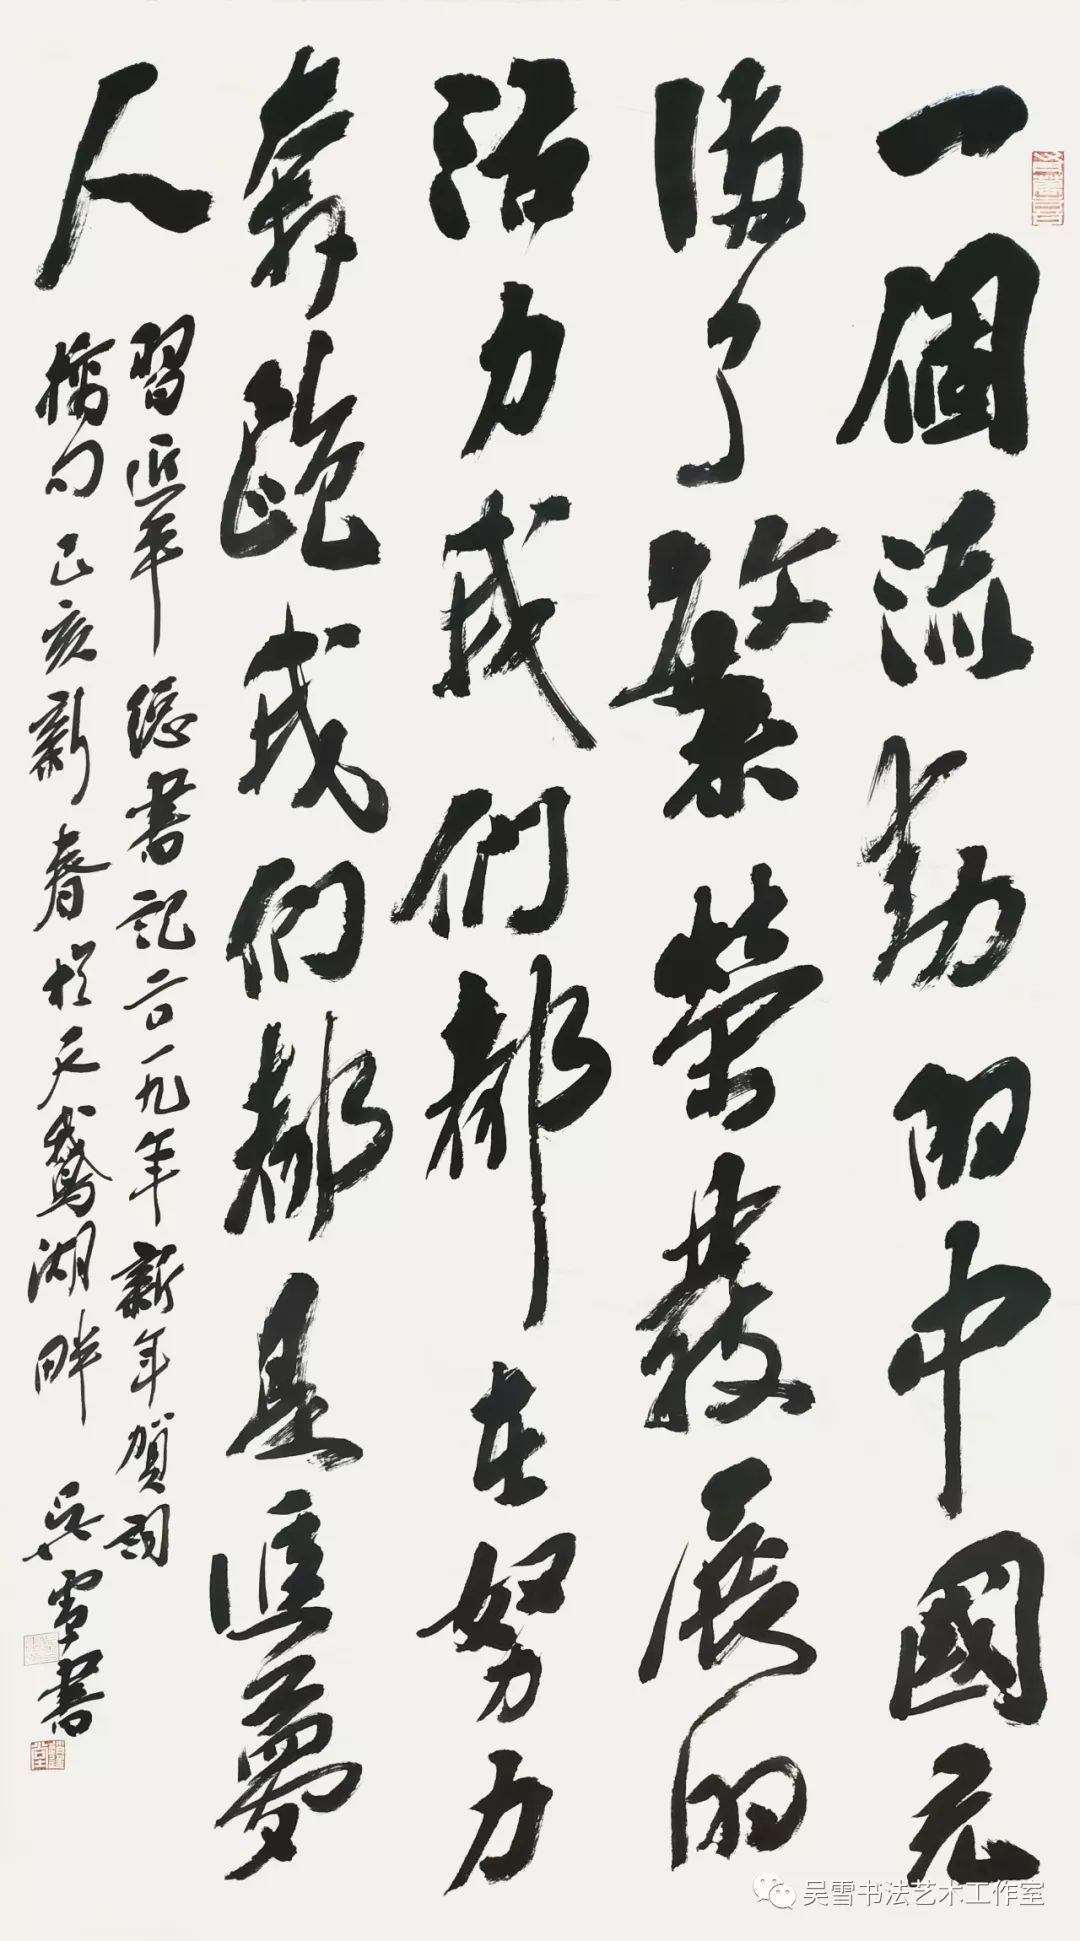 一個流動的中國充
滿了繁榮發展的
活力我們都在努力
奔跑我們都是追夢
人
習近平總書記二〇一九年新年賀詞
摘句己亥新春於天鵝湖畔 吳雪書
吴雪书法艺术工作室